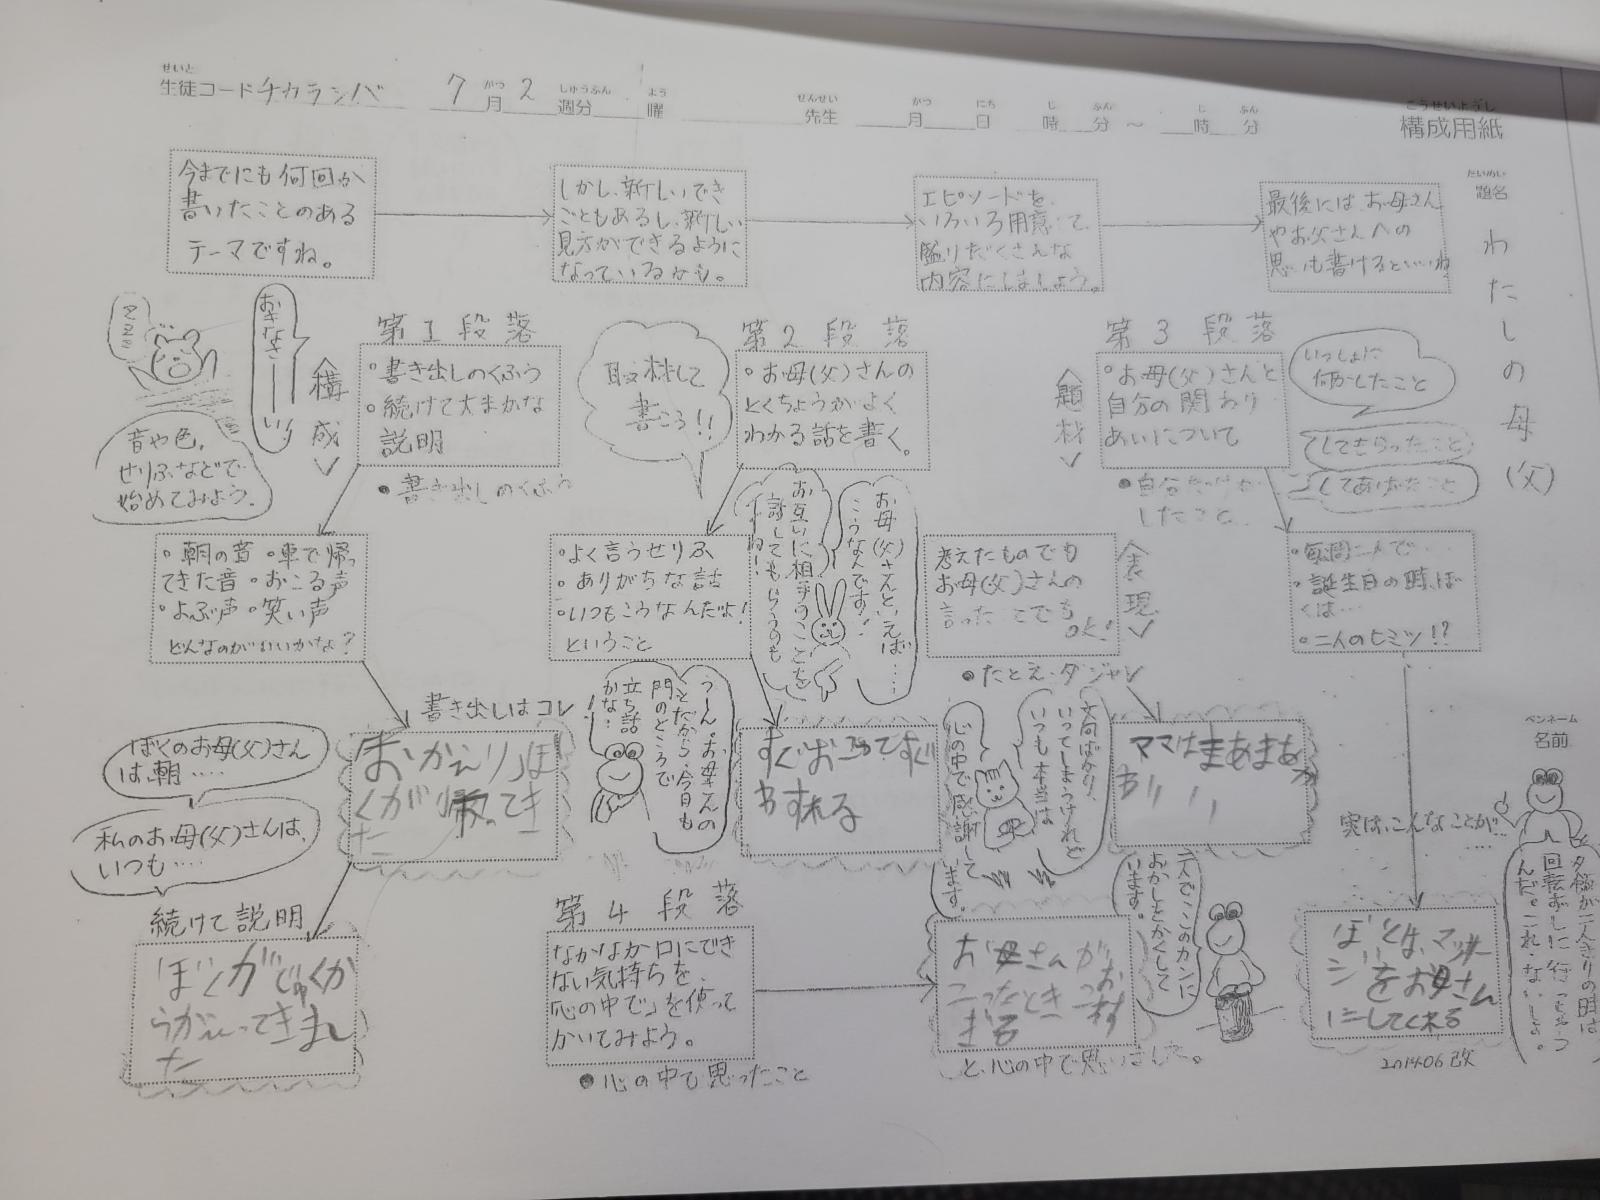 せいと
生徒コードチカラシバ 7月2週分 曜 先生 月 日 時 分 ～ 時 分
がつ しゅうぶん よう せんせい がつ にち じ ふん じ ふん
こうせいようし
構成用紙
だいめい
題名
わたしの母(父)
今までにも何回か
書いたことのある
テーマですね。
しかし、新しいでき
ごともあるし、新しい
見方ができるように
なっているかも。
エピソードを、
いろいろ用意して、
盛りだくさんな
内容にしましょう。
最後には、お母さん
やお父さんへの
思いも書けるといいね
おきなさーーい!
音や色、
せりふなどで
始めてみよう。
<構成>
第1段落
・書き出しのくふう
・続けて大まかな
説明
・書き出しのくふう
・朝の音 ・車で帰っ
てきた音 ・おこる声
・よぶ声 ・笑い声
どんなのがいいかな?
書き出しはコレ
ぼくのお母(父)さん
は、朝……
私のお母(父)さんは、
いつも……
おかえり」ぼ
くが帰ってき
た
続けて説明
ぼくが
きまし
た
取材して
書こう!!
第2段落
・お母(父)さんの
とくちょうがよく
わかる話を書く。
・よく言うせりふ
・ありがちな話
・いつもこうなんだよ!
ということ
お母(父)さんといえば……
こうなんです!
お互いに相手のことを
話してもらうのも
うーん。お母さんの
ことだから、今日も
門のところで
立ち話
かな…
すぐおこってすぐ
わすれる
<題材>
第3段落
・お母(父)さんと
自分の関わり
あいについて
いっしょに
何かしたこと
してもらったこと
してあげたこと
・毎週二人で……
・誕生日の時、ぼ
くは…
・二人のヒミツ!?
<表現>
考えたものでも
お母(父)さんの
言ったことでも
OK!
・たとえ・ダジャレ
文句ばかり、
いってしまうけれど
いつも本当は
心の中で感謝して
います。
ママはまあまあ
実は、こんなことが……
夕飯が二人きりの時は
回転ずしに行っちゃう
んだ。これ、ないしょ。
ぼくは、マッサー
ジをお母さん
にしてくれる
201406改
ペンネーム
名前
第4段落
なかなか口にでき
ない気持ちを、
「心の中で」を使って
かいてみよう。
・心の中で思ったこと
二人でこのカンに
おかしをかくして
います。
お母さんがお
こったとき
と、心の中で思いました。